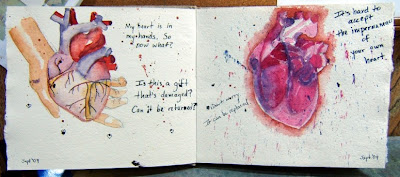 My heart is in
my hands. So
now what?
Is this a gift
that's damaged?
Can it be returned?
Sept '09
It's hard to
accept
the impermanence
of
your own
heart.
Don't worry
It can be replaced
Sept '09